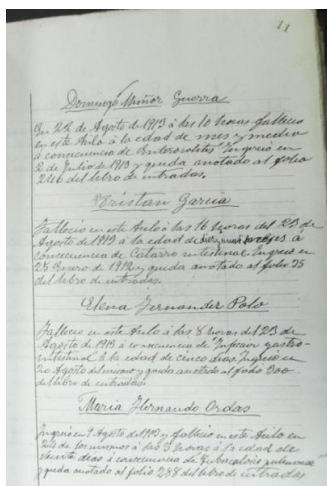 Domingo Muñoz Guerra
En 22 de Agosto de 1913 á las 10 horas falleció
en este Asilo á la edad de mes y medio
á consecuencia de Enterocolitis. Ingresó en
2 de Julio de 1913 y queda anotado al folio
246 del libro de entradas.
Tristan Garcia
Falleció en este Asilo á las 16 horas del 23 de
Agosto de 1913 á la edad de
consecuencia de Catarro intestinal. Ingresó en
25 Enero de 1912 y queda anotado al folio 35
del libro de entradas.
Elena Fernandez Polo
Falleció en este Asilo á las 8 horas del 23 de
Agosto de 1913 á consecuencia de Infeccion gastro-
intestinal á la edad de cinco dias. Ingresó en
20 Agosto del mismo y queda anotado al folio 300
del libro de entradas.
Maria Hernando Ordas
Ingresó en 9 Agosto del 1913 y falleció en este Asilo en
24 de los mismos á las 3 horas á la edad de
veinte dias á consecuencia de Tuberculosis pulmonar
y queda anotado al folio 288 del libro de entradas